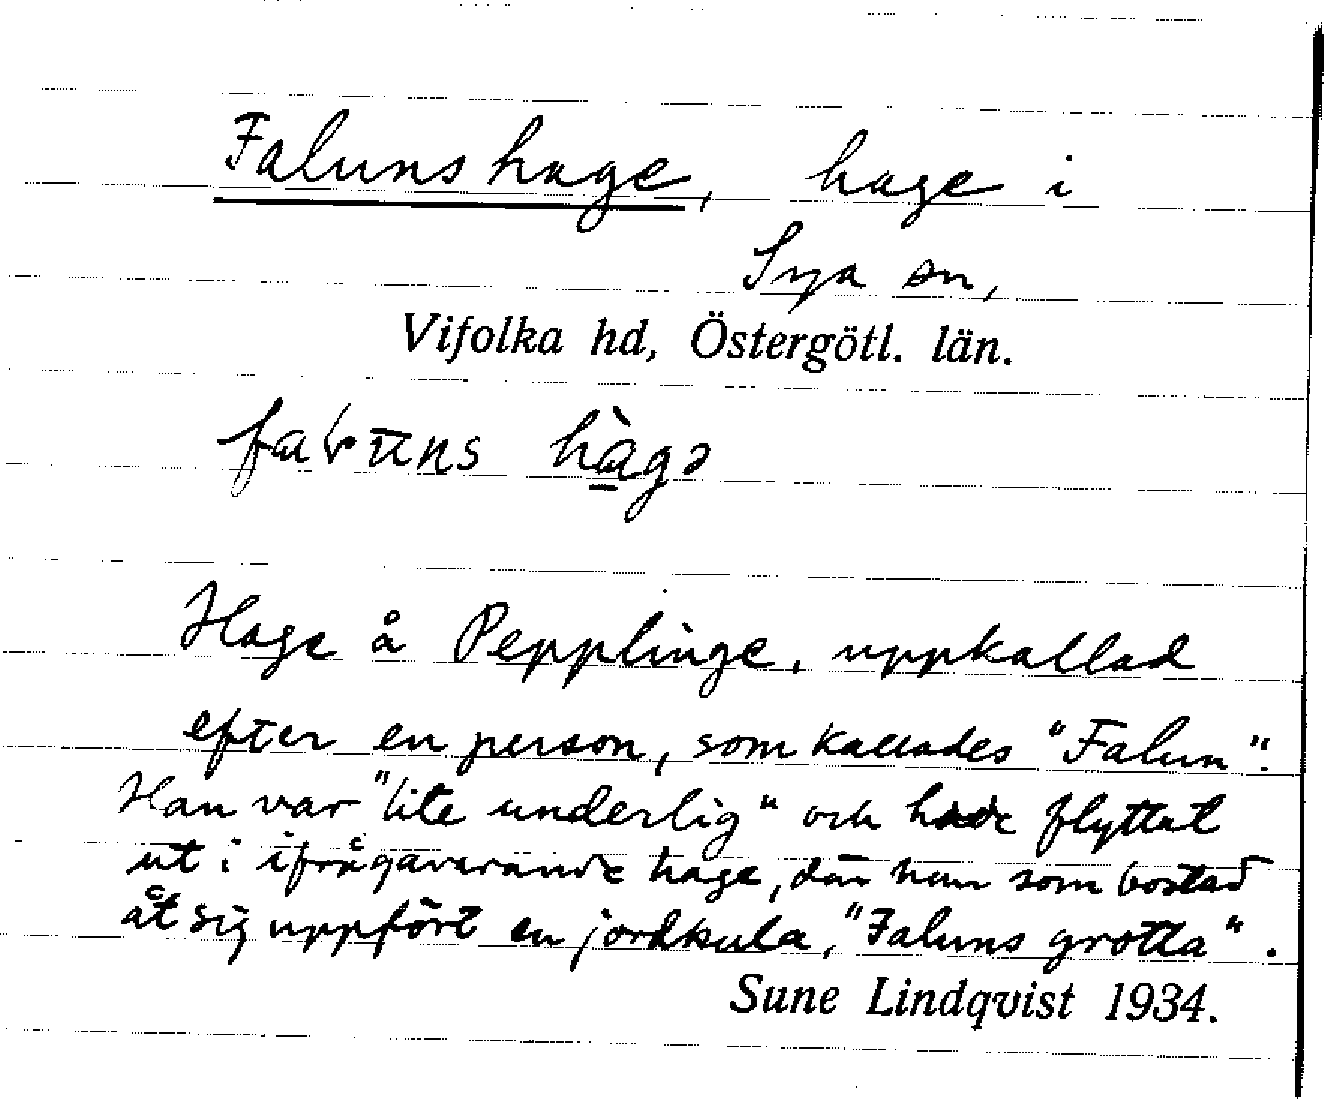 Faluns hage, hage i
Sya sn,
Vifolka hd, Östergötl. län.
hage
Hage å Pepplinge, uppkallad
efter en person, som kallades "Falun".
Han var "lite underlig" och hade flyttat
ut i ifrågavarande hage, där han som bostad
åt sig uppfört en jordkula, "Faluns grotta".
Sune Lindqvist 1934.